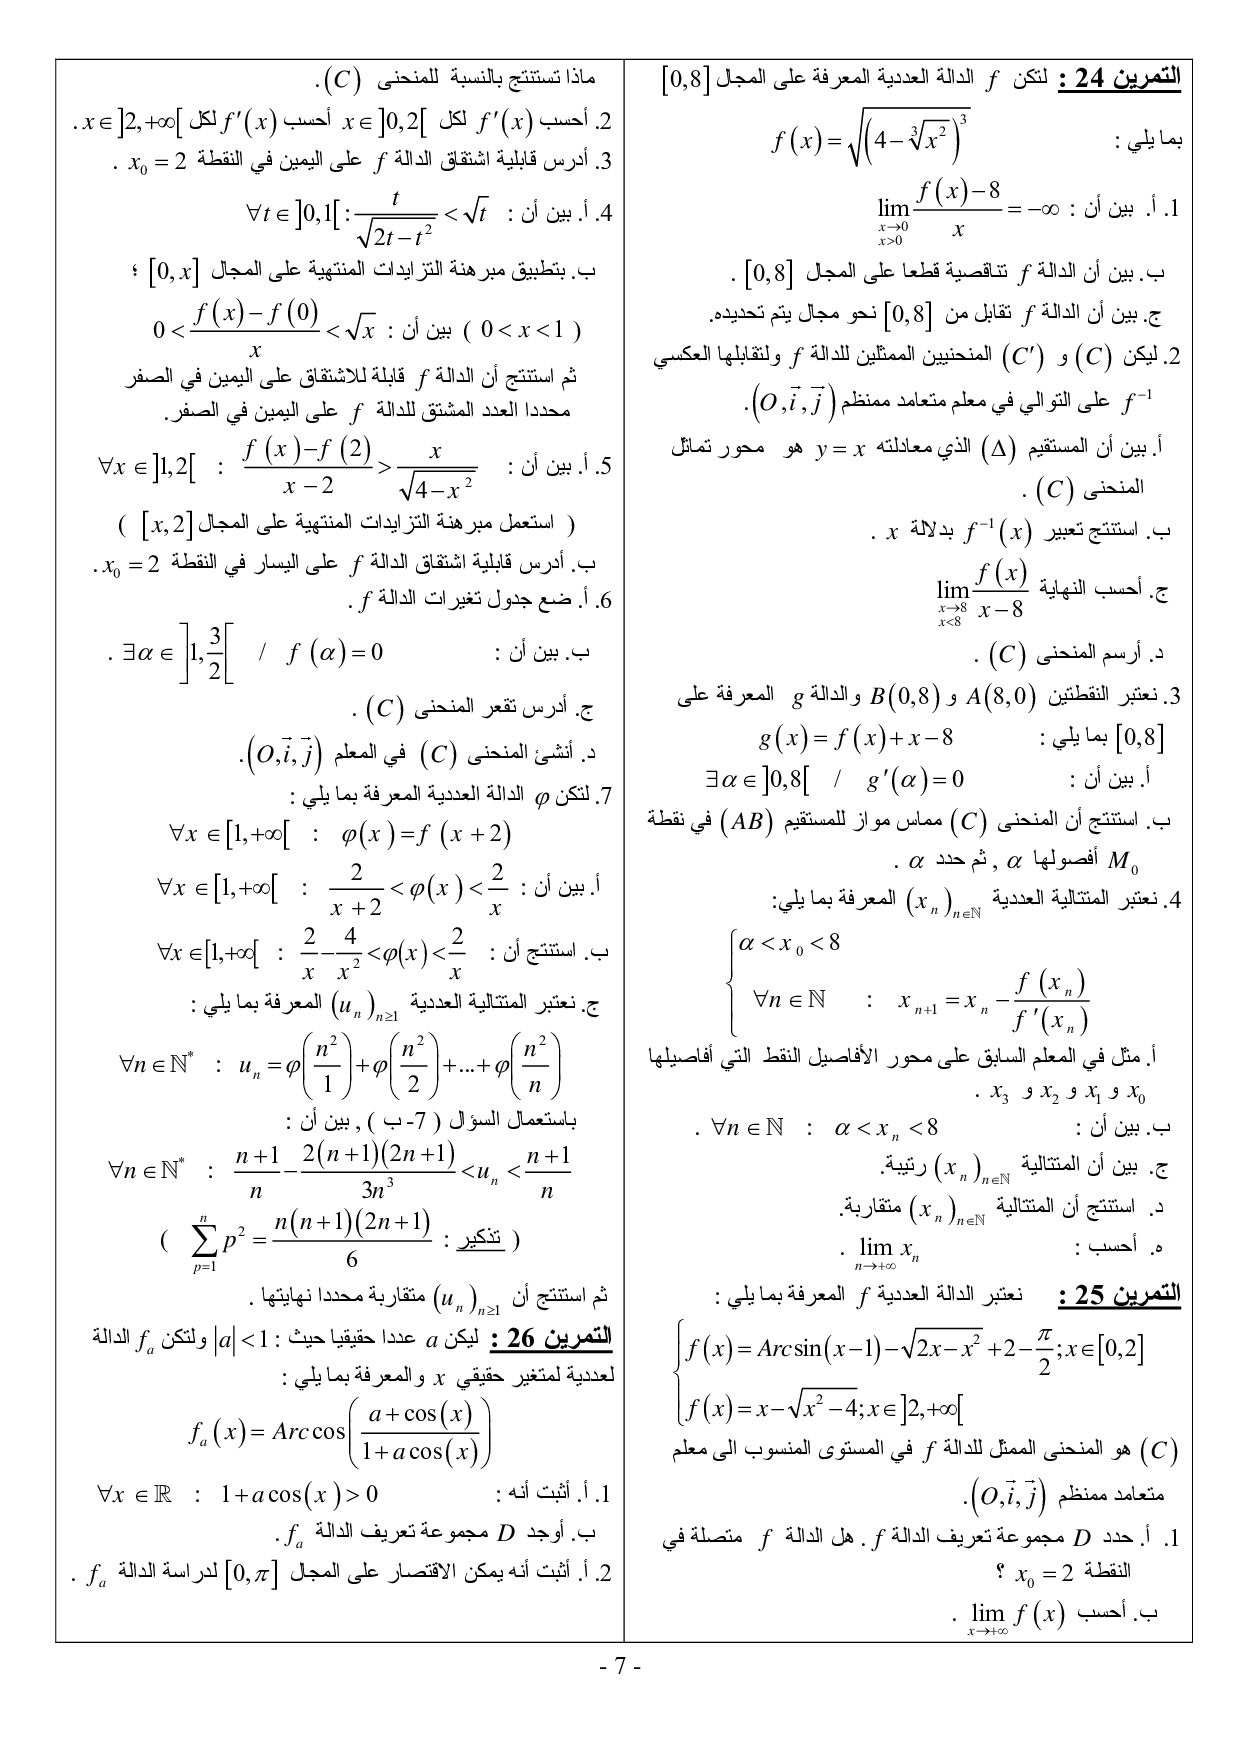 التمرين 24 : لتكن f الدالة العددية المعرفة على المجال [0,8]
بما يلي : f(x) = √((4 − ∛(x²))³)
1. أ. بين أن : lim_{x→0, x>0} (f(x) − 8)/x = −∞
ب. بين أن الدالة f تناقصية قطعا على المجال [0,8] .
ج. بين أن الدالة f تقابل من [0,8] نحو مجال يتم تحديده.
2. ليكن (C) و (C′) المنحنيين الممثلين للدالة f ولتقابلها العكسي
f⁻¹ على التوالي في معلم متعامد ممنظم (O, i⃗, j⃗).
أ. بين أن المستقيم (Δ) الذي معادلته y = x هو محور تماثل
المنحنى (C) .
ب. استنتج تعبير f⁻¹(x) بدلالة x .
ج. أحسب النهاية lim_{x→8, x<8} f(x)/(x − 8)
د. أرسم المنحنى (C) .
3. نعتبر النقطتين A(8,0) و B(0,8) والدالة g المعرفة على
[0,8] بما يلي : g(x) = f(x) + x − 8
أ. بين أن : ∃α ∈ ]0,8[ / g′(α) = 0
ب. استنتج أن المنحنى (C) مماس مواز للمستقيم (AB) في نقطة
M₀ أفصولها α , ثم حدد α .
4. نعتبر المتتالية العددية (x_n)_{n∈ℕ} المعرفة بما يلي:
{ α < x₀ < 8
∀n ∈ ℕ : x_{n+1} = x_n − f(x_n)/f′(x_n)
أ. مثل في المعلم السابق على محور الأفاصيل النقط التي أفاصيلها
x₀ و x₁ و x₂ و x₃ .
ب. بين أن : ∀n ∈ ℕ : α < x_n < 8 .
ج. بين أن المتتالية (x_n)_{n∈ℕ} رتيبة.
د. استنتج أن المتتالية (x_n)_{n∈ℕ} متقاربة.
ه. أحسب : lim_{n→+∞} x_n .
التمرين 25 : نعتبر الدالة العددية f المعرفة بما يلي :
{ f(x) = Arcsin(x−1) − √(2x−x²) + 2 − π/2 ; x∈[0,2]
f(x) = x − √(x²−4) ; x∈]2,+∞[
(C) هو المنحنى الممثل للدالة f في المستوى المنسوب الى معلم
متعامد ممنظم (O, i⃗, j⃗).
1. أ. حدد D مجموعة تعريف الدالة f . هل الدالة f متصلة في
النقطة x₀ = 2 ؟
ب. أحسب lim_{x→+∞} f(x) .
ماذا تستنتج بالنسبة للمنحنى (C) .
2. أحسب f′(x) لكل x∈]0,2[ أحسب f′(x) لكل x∈]2,+∞[ .
3. أدرس قابلية اشتقاق الدالة f على اليمين في النقطة x₀ = 2 .
4. أ. بين أن : ∀t∈]0,1[ : t/√(2t−t²) < √t
ب. بتطبيق مبرهنة التزايدات المنتهية على المجال [0,x] ؛
( 0 < x < 1 ) بين أن : 0 < (f(x)−f(0))/x < √x
ثم استنتج أن الدالة f قابلة للاشتقاق على اليمين في الصفر
محددا العدد المشتق للدالة f على اليمين في الصفر.
5. أ. بين أن : ∀x∈]1,2[ : (f(x)−f(2))/(x−2) > x/√(4−x²)
( استعمل مبرهنة التزايدات المنتهية على المجال [x,2] )
ب. أدرس قابلية اشتقاق الدالة f على اليسار في النقطة x₀ = 2 .
6. أ. ضع جدول تغيرات الدالة f .
ب. بين أن : ∃α ∈ ]1, 3/2[ / f(α) = 0 .
ج. أدرس تقعر المنحنى (C) .
د. أنشئ المنحنى (C) في المعلم (O, i⃗, j⃗).
7. لتكن φ الدالة العددية المعرفة بما يلي :
∀x∈[1,+∞[ : φ(x) = f(x+2)
أ. بين أن : ∀x∈[1,+∞[ : 2/(x+2) < φ(x) < 2/x
ب. استنتج أن : ∀x∈[1,+∞[ : 2/x − 4/x² < φ(x) < 2/x
ج. نعتبر المتتالية العددية (u_n)_{n≥1} المعرفة بما يلي :
∀n∈ℕ* : u_n = φ(n²/1) + φ(n²/2) + ... + φ(n²/n)
باستعمال السؤال ( 7- ب ) , بين أن :
∀n∈ℕ* : (n+1)/n − 2(n+1)(2n+1)/(3n³) < u_n < (n+1)/n
( تذكير : Σ_{p=1}^{n} p² = n(n+1)(2n+1)/6 )
ثم استنتج أن (u_n)_{n≥1} متقاربة محددا نهايتها .
التمرين 26 : ليكن a عددا حقيقيا حيث : |a| < 1 ولتكن f_a الدالة
لعددية لمتغير حقيقي x والمعرفة بما يلي :
f_a(x) = Arccos((a + cos(x))/(1 + a cos(x)))
1. أ. أثبت أنه : ∀x ∈ ℝ : 1 + a cos(x) > 0
ب. أوجد D مجموعة تعريف الدالة f_a .
2. أ. أثبت أنه يمكن الاقتصار على المجال [0,π] لدراسة الدالة f_a .
- 7 -